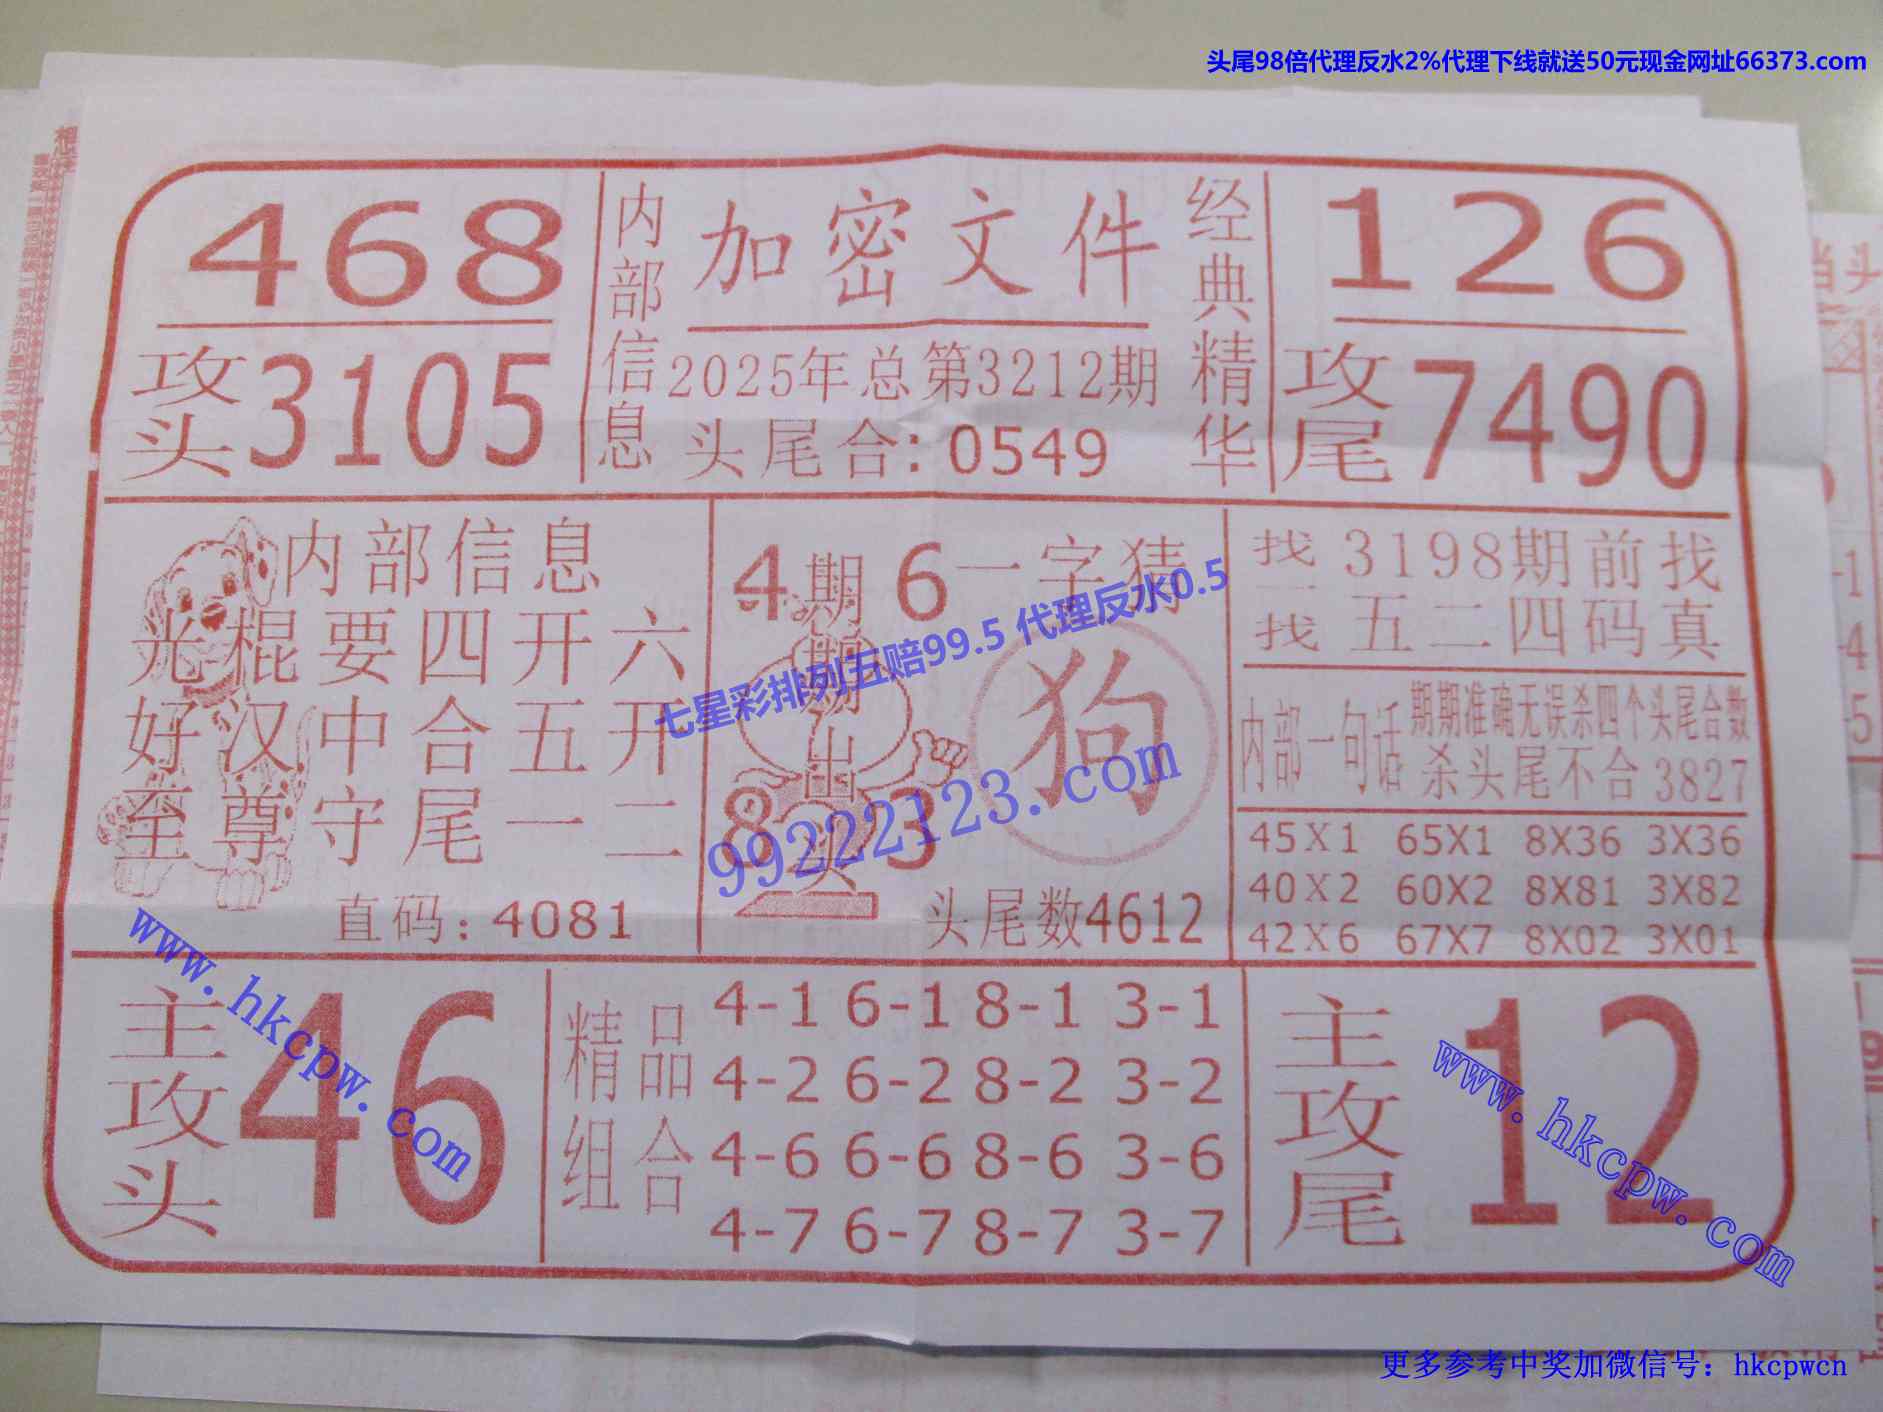 头尾98倍代理反水2%代理下线就送50元现金网址66373.com
468
攻头3105
内部信息
加密文件
2025年总第3212期
头尾合:0549
经典精华
126
攻尾7490
内部信息
光棍要四开六
好汉中合五开
至尊守尾一二
直码:4081
4 6
期期出头
8 3
一字猜
狗
头尾数4612
七星彩排列五赔99.5 代理反水0.5
99222123.com
找一找
3198期前找
五二四码真
内部一句话
期期准确无误杀四个头尾合数
杀头尾不合3827
45X1 65X1 8X36 3X36
40X2 60X2 8X81 3X82
42X6 67X7 8X02 3X01
主攻头
46
www.hkcpw.com
精品组合
4-1 6-1 8-1 3-1
4-2 6-2 8-2 3-2
4-6 6-6 8-6 3-6
4-7 6-7 8-7 3-7
主攻尾
12
www.hkcpw.com
更多参考中奖加微信号:hkcpwcn